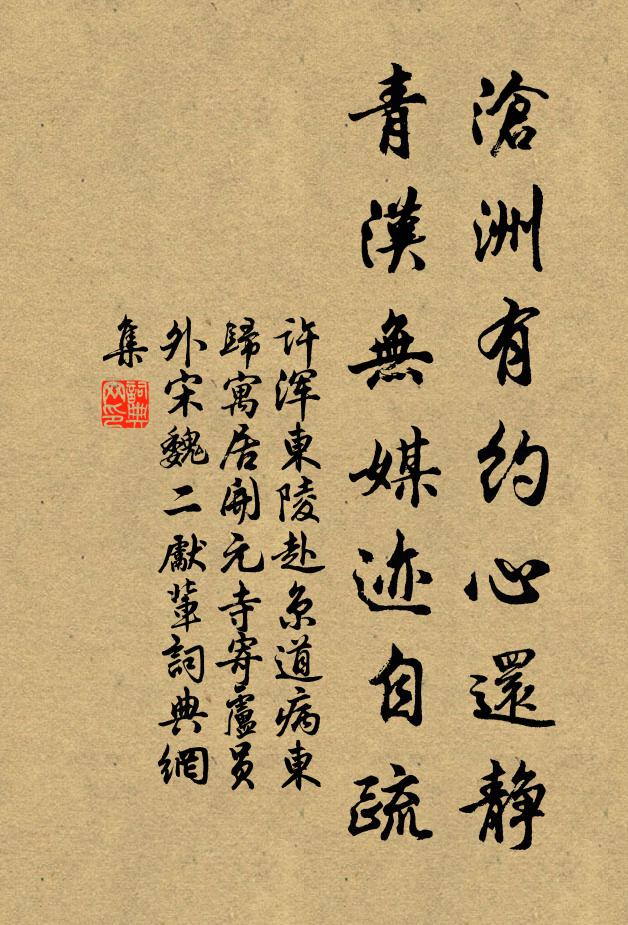 滄洲有約心還静
青漢無媒迹自疏
許渾東陵赴京道病東
歸寓居開元寺寄盧员
外宋魏二獻輩詞典網
集
詞典网印